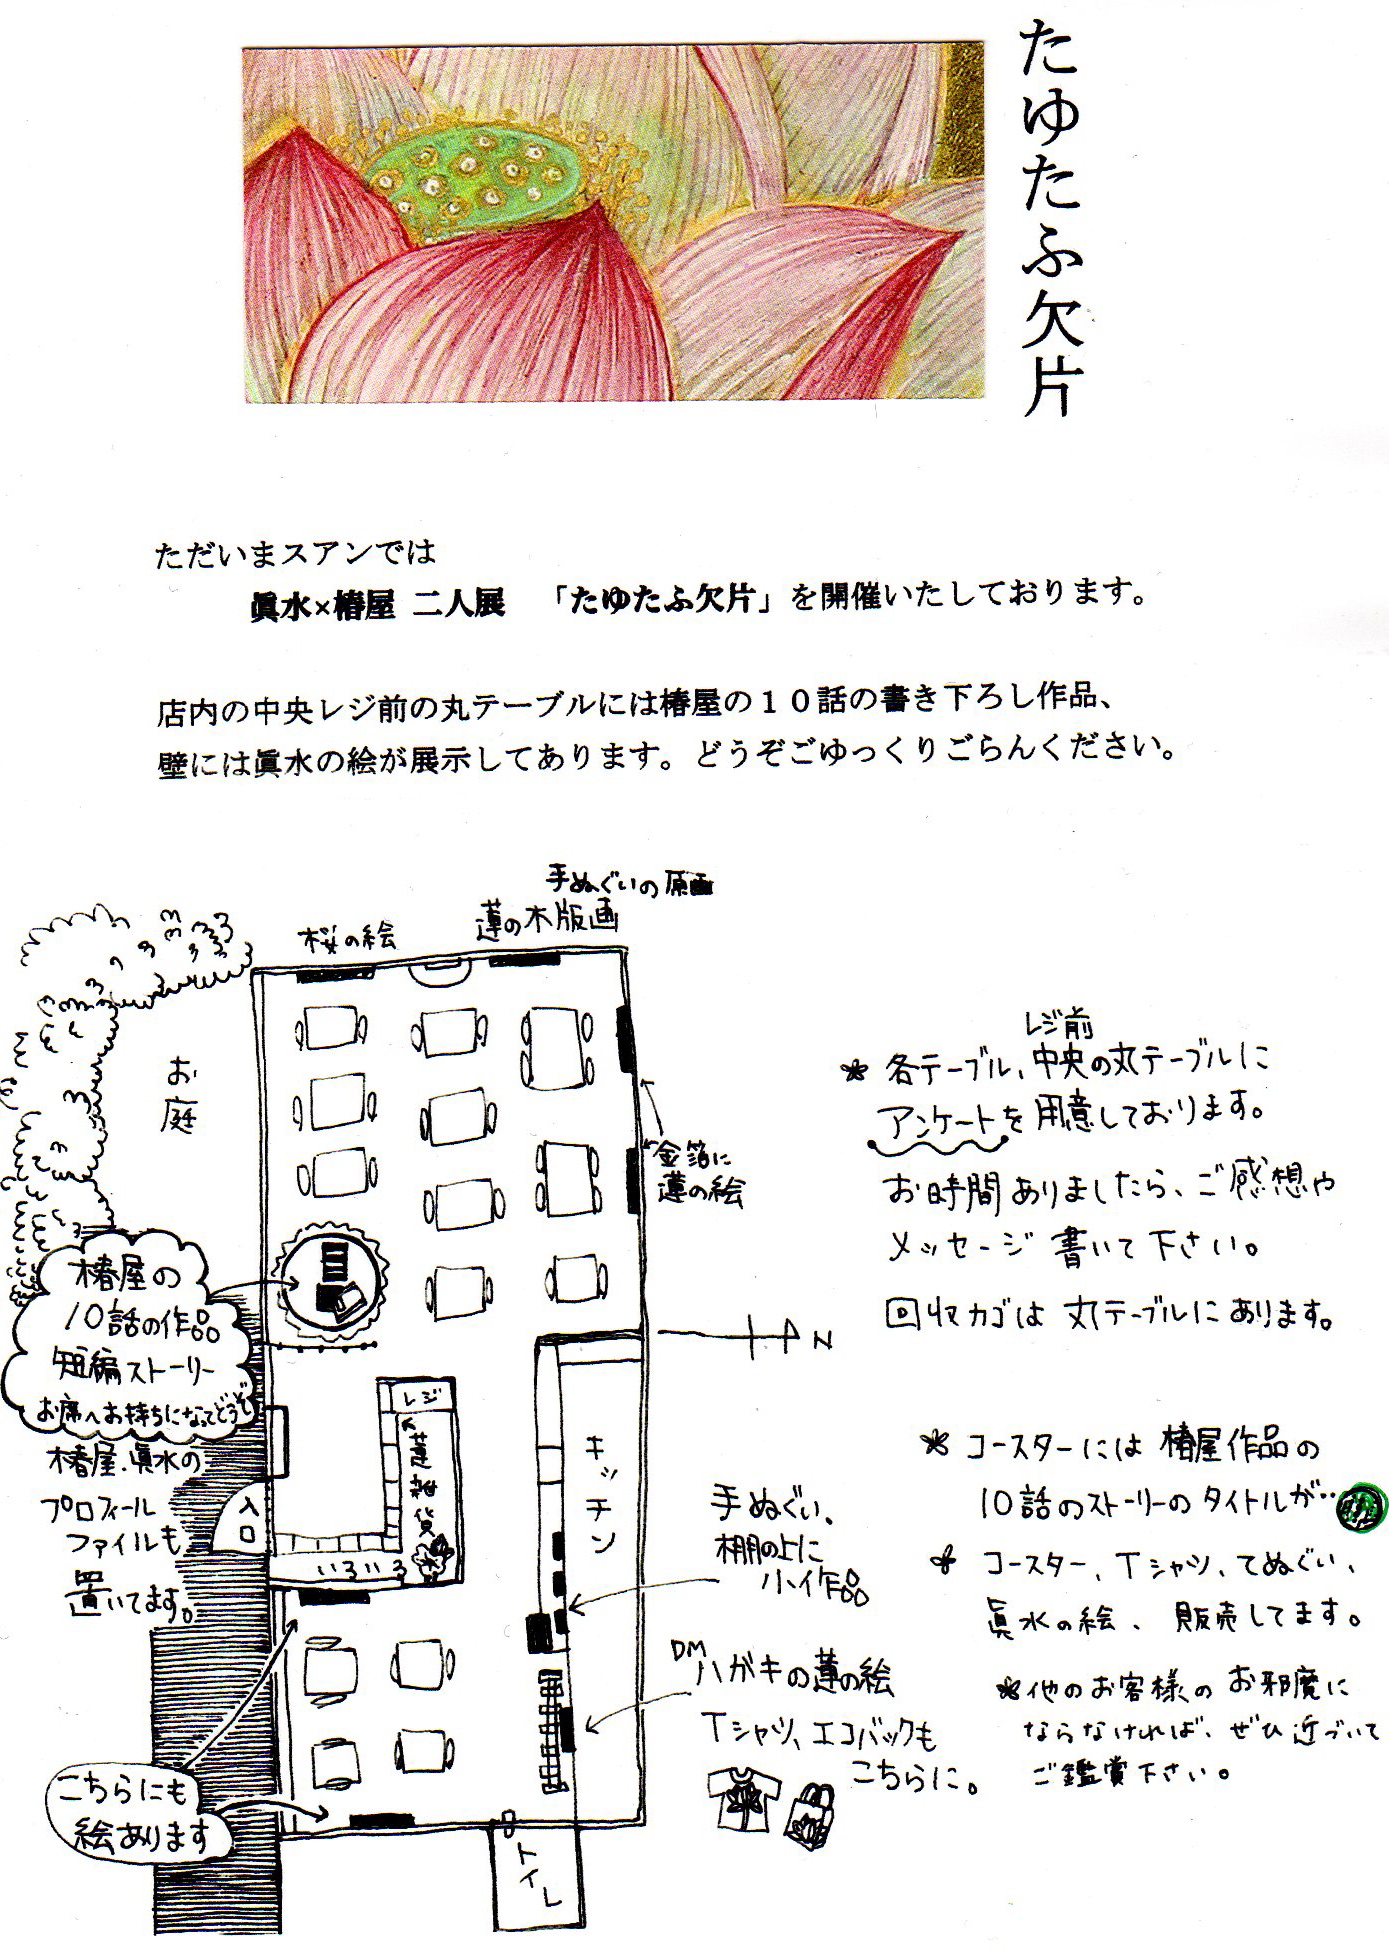 たゆたふ欠片
ただいまスアンでは
眞水×椿屋 二人展 「たゆたふ欠片」を開催いたしております。
店内の中央レジ前の丸テーブルには椿屋の１０話の書き下ろし作品、
壁には眞水の絵が展示してあります。どうぞごゆっくりごらんください。
手ぬぐいの原画
蓮の木版画
桜の絵
お庭
金箔に
蓮の絵
椿屋の
10話の作品
短編ストーリー
お席へお持ちになってどうぞ
椿屋、眞水の
プロフィール
ファイルも
置いてます。
入口
レジ
蓮雑貨
いろいろ
キッチン
N
手ぬぐい、
棚の上に
小作品
DM
ハガキの蓮の絵
Tシャツ、エコバックも
こちらに。
こちらにも
絵あります
トイレ
レジ前
* 各テーブル、中央の丸テーブルに
アンケートを用意しております。
お時間ありましたら、ご感想や
メッセージ書いて下さい。
回収カゴは丸テーブルにあります。
* コースターには椿屋作品の
10話のストーリーのタイトルが‥
* コースター、Tシャツ、てぬぐい、
眞水の絵、販売してます。
* 他のお客様のお邪魔に
ならなければ、ぜひ近づいて
ご鑑賞下さい。